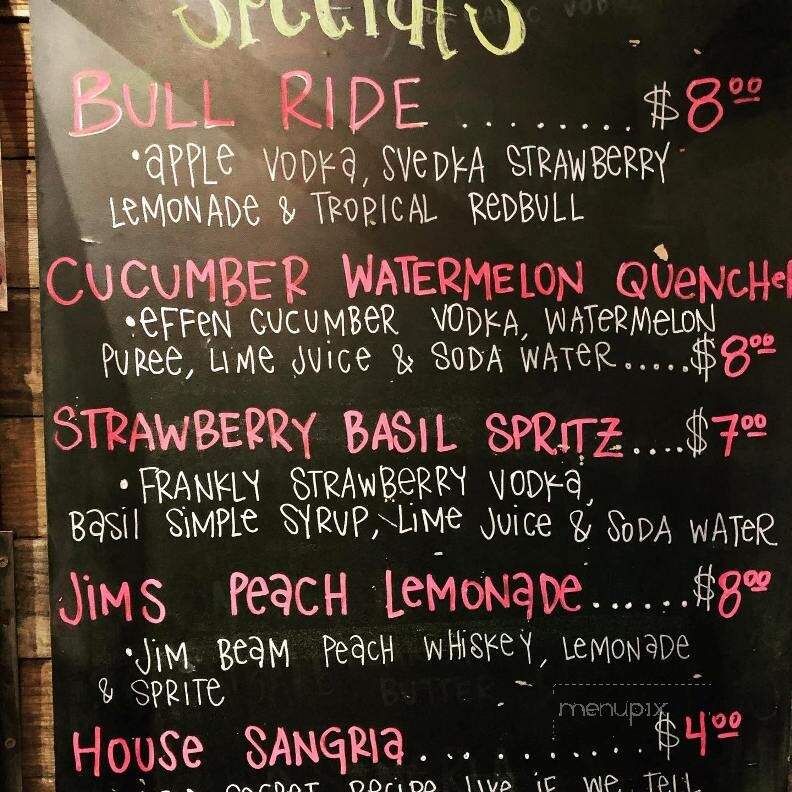 Specials
BULL RIDE ......... $8.00
•aPPLE VODKa, SVEDKA STRAWBERRY
LEMONADE & TROPICAL REDBULL
CUCUMBER WATERMELON QUENCHeR
•eFFEN CUCUMBER VODKA, WATeRMeLON
PUREE, LIME JUICE & SODA WATER.....$8.00
STRAWBERRY BASIL SPRITZ....$7.00
•FRANKLY STRAWBERRY VODKa,
BasIl SiMPLE SYRUP, LIMe JuIce & SoDA WATeR
JiMS PEaCH LeMONaDE......$8.00
•JIM BEaM PEaCH WHiSKeY, LeMONADe
& SPRITE
BUTTER
menupix
HOUSe SANGRIa............$4.00
SECRET RECIPE LIVE IF WE TELL